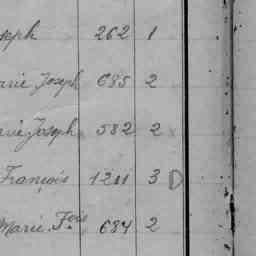 seph 262 1
arie Joseph 685 2
arie Joseph 582 2
François 1211 3 D
Marie Fois 684 2